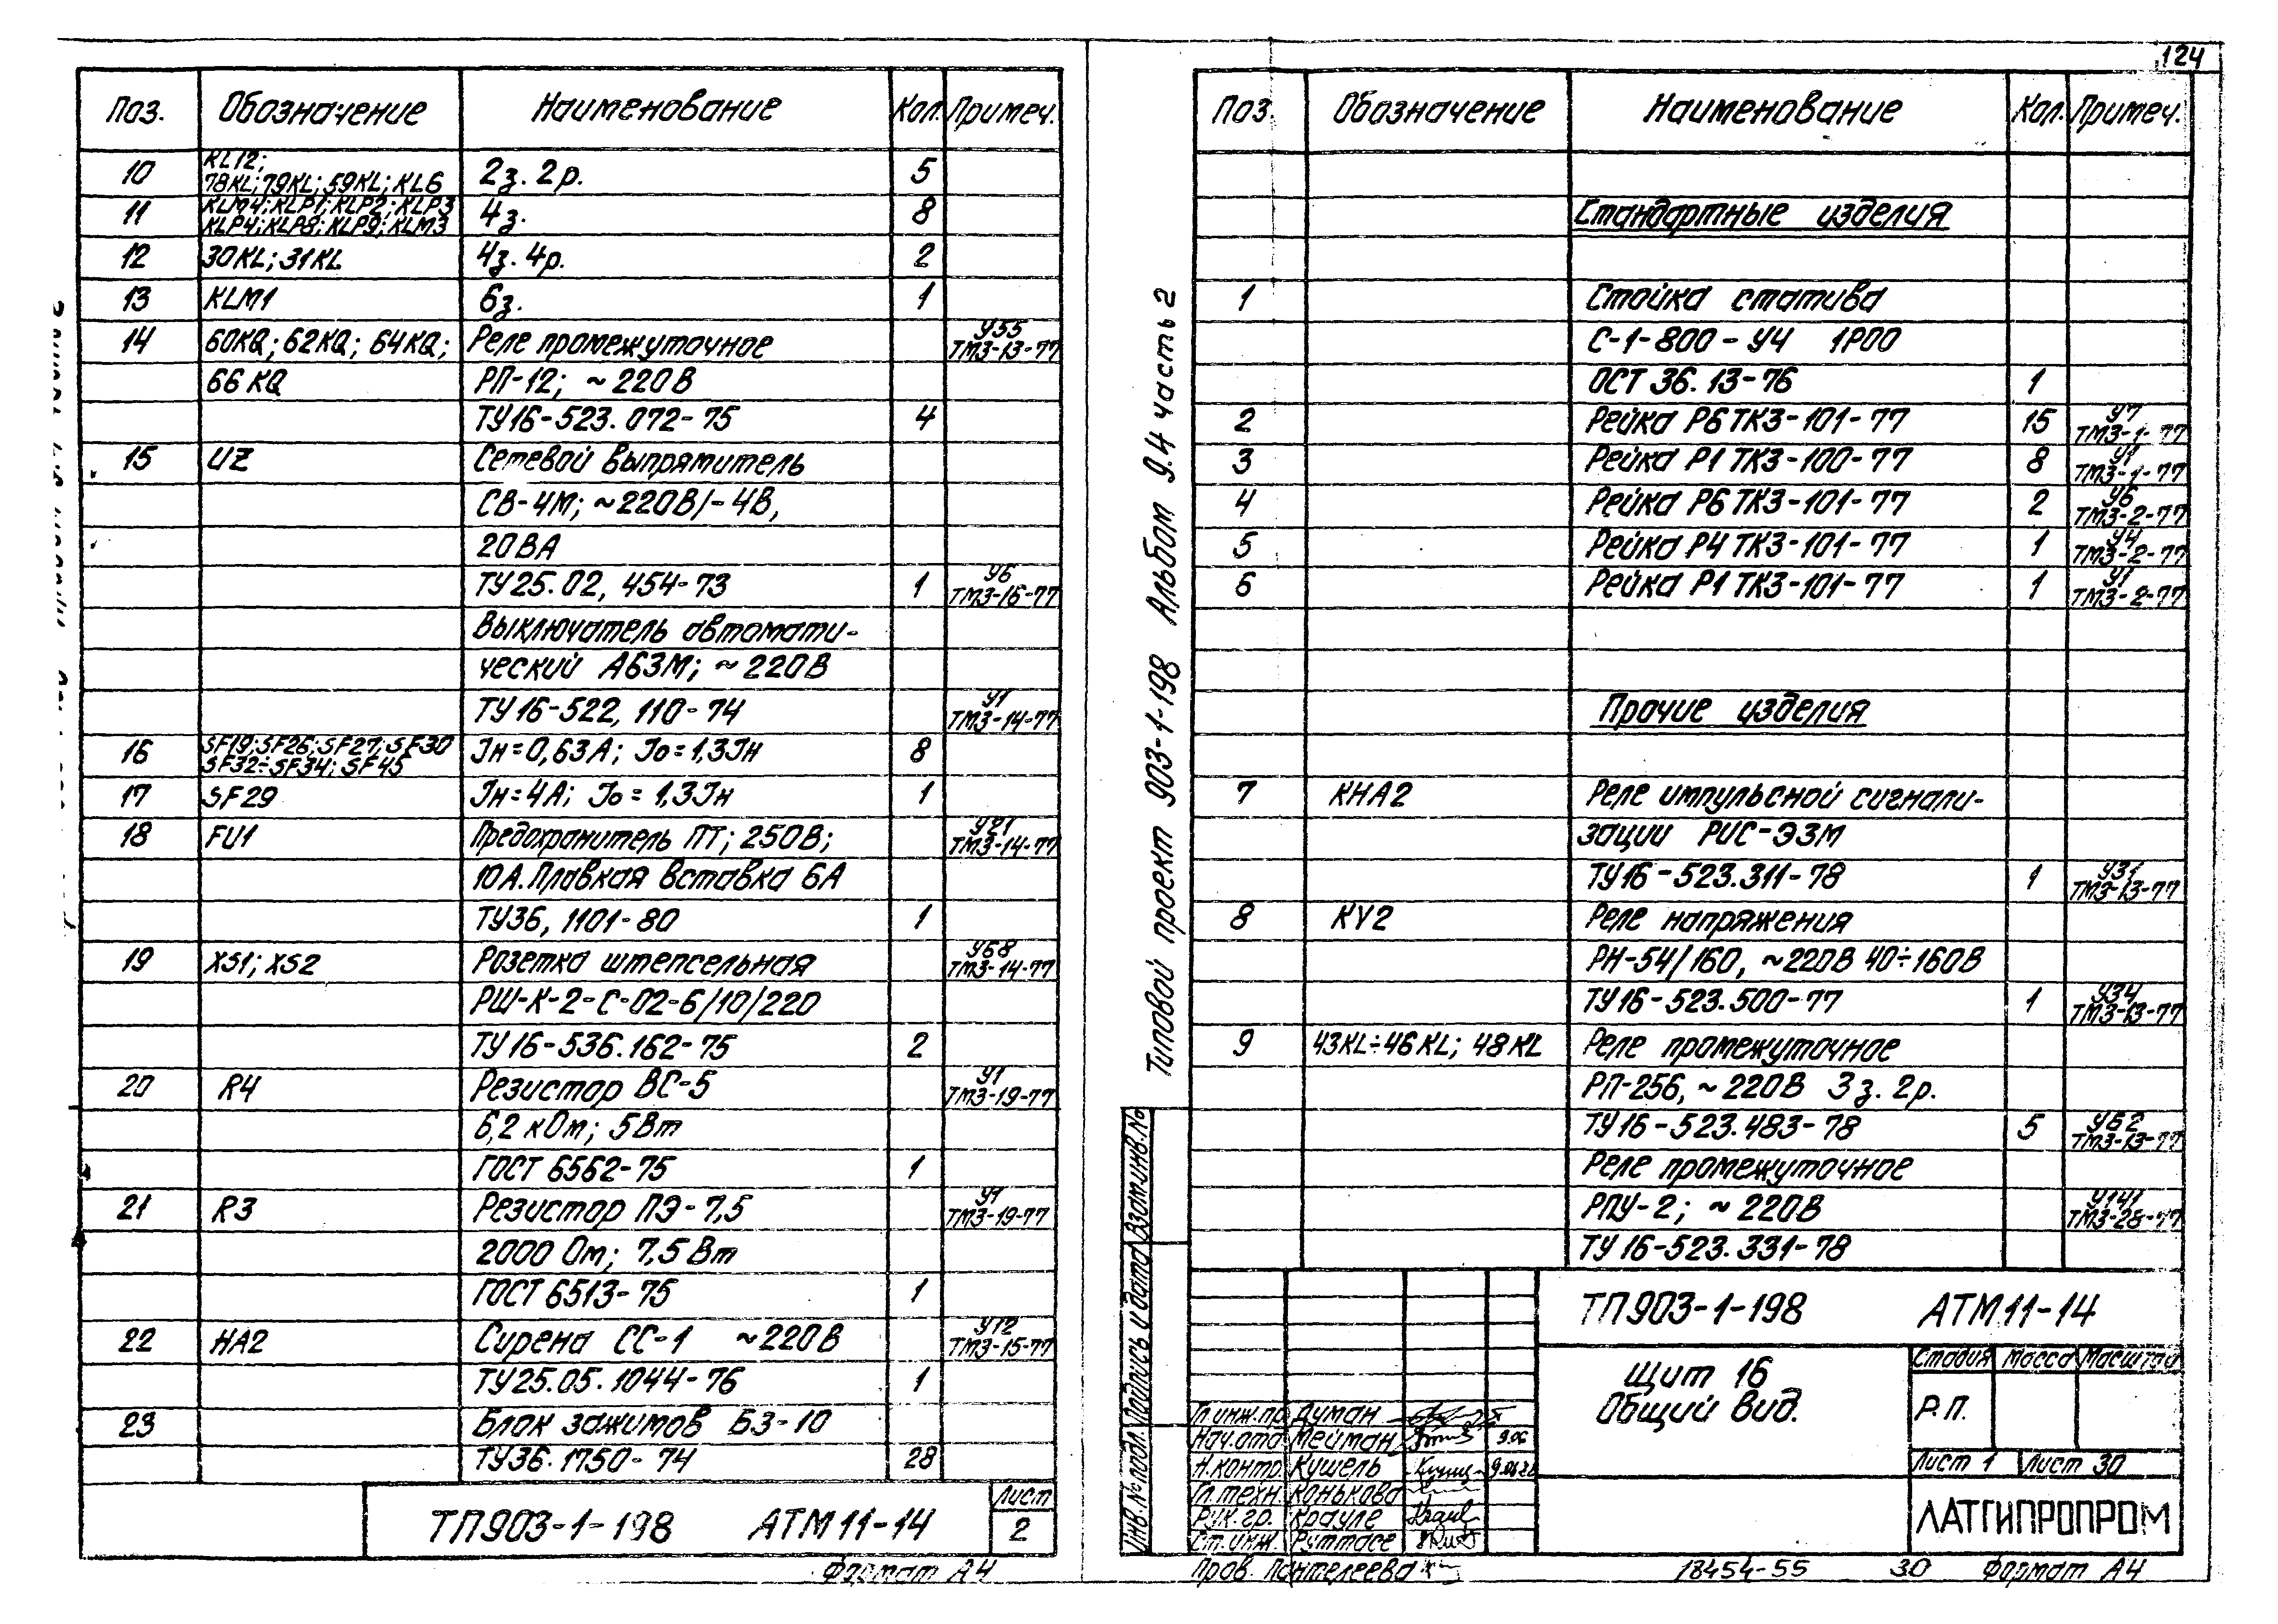 124
Поз. Обозначение Наименование Кол. Примеч.
10 KL12; 78KL; 79KL; 59KL; KL6 2з. 2р. 5
11 KLM4; KLP1; KLP2; KLP3 KLP4; KLP8; KLP9; KLM3 4з. 8
12 30KL; 31KL 4з. 4р. 2
13 KLM1 6з. 1
14 60KQ; 62KQ; 64KQ; Реле промежуточное У55 ТМ3-13-77
66KQ РП-12; ~220В
ТУ16-523.072-75 4
15 UZ Сетевой выпрямитель
СВ-4М; ~220В/-4В,
20ВА
ТУ25.02, 454-73 1 У6 ТМ3-16-77
Выключатель автомати-
ческий А63М; ~220В
ТУ16-522, 110-74 У1 ТМ3-14-77
16 SF19; SF26; SF27; SF30 SF32÷SF34; SF45 Iн=0,63А; Iо=1,3Iн 8
17 SF29 Iн=4А; Iо=1,3Iн 1
18 FU1 Предохранитель ПТ; 250В; У21 ТМ3-14-77
10А. Плавкая вставка 6А
ТУ36, 1101-80 1
19 XS1; XS2 Розетка штепсельная У68 ТМ3-14-77
РШ-К-2-С-02-6/10/220
ТУ16-536.162-75 2
20 R4 Резистор ВС-5 У1 ТМ3-19-77
6,2 кОм; 5Вт
ГОСТ 6562-75 1
21 R3 Резистор ПЭ-7,5 У1 ТМ3-19-77
2000 Ом; 7,5 Вт
ГОСТ 6513-75 1
22 HA2 Сирена СС-1 ~220В У12 ТМ3-15-77
ТУ25.05.1044-76 1
23 Блок зажимов БЗ-10
ТУ36.1750-74 28
ТП903-1-198 АТМ11-14 Лист 2
Формат А4
Типовой проект 903-1-198 Альбом 9.4 часть 2
Поз. Обозначение Наименование Кол. Примеч.
Стандартные изделия
1 Стойка статива
С-1-800-У4 1Р00
ОСТ 36.13-76 1
2 Рейка Р6 ТК3-101-77 15 У7 ТМ3-1-77
3 Рейка Р1 ТК3-100-77 8 У1 ТМ3-1-77
4 Рейка Р6 ТК3-101-77 2 У6 ТМ3-2-77
5 Рейка Р4 ТК3-101-77 1 У4 ТМ3-2-77
6 Рейка Р1 ТК3-101-77 1 У1 ТМ3-2-77
Прочие изделия
7 KHA2 Реле импульсной сигнали-
зации РИС-Э3М
ТУ16-523.311-78 1 У31 ТМ3-13-77
8 KV2 Реле напряжения
РН-54/160, ~220В 40÷160В
ТУ16-523.500-77 1 У34 ТМ3-13-77
9 43KL÷46KL; 48KL Реле промежуточное
РП-256, ~220В 3з. 2р.
ТУ16-523.483-78 5 У62 ТМ3-13-77
Реле промежуточное
РПУ-2; ~220В У141 ТМ3-28-77
ТУ16-523.331-78
Инв.№ подл. Подпись и дата Взам.инв.№
ТП903-1-198 АТМ11-14
Щит 16
Общий вид.
Стадия Масса Масштаб
Р.П.
Лист 1 Лист 30
ЛАТГИПРОПРОМ
Гл.инж.пр. Думан
Нач.отд Мейман 9.06
Н.контр Кушель
Гл.техн. Конькова
Рук.гр. Крауле
Ст.инж. Руттасе
Пров. Пантелеева
18454-55 30 Формат А4